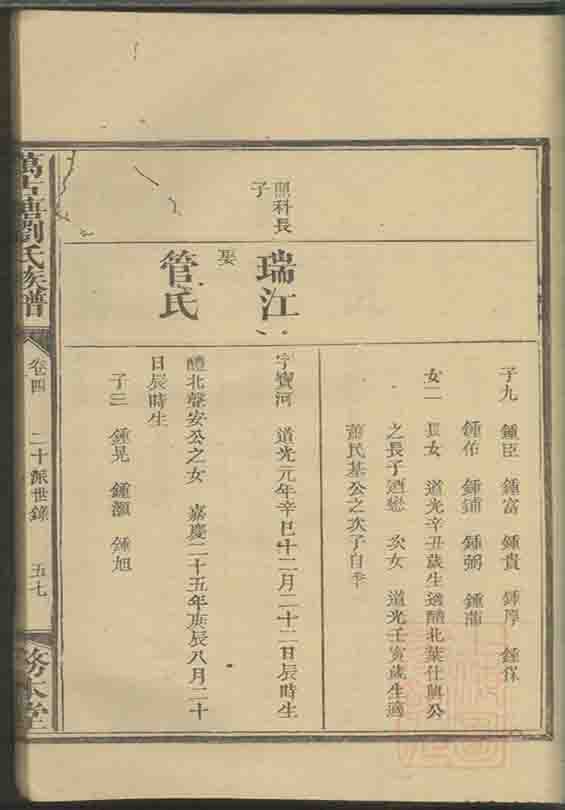 子九 鍾臣 鍾富 鍾貴 鍾厚 鍾保
鍾佑 鍾鋪 鍾弼 鍾蒲
女二 長女 道光辛丑歲生適醴北葉仕與公
之長子迺懋 次女 道光壬寅歲生適
蕭民基公之次子自
照科長
子
瑞江
字寶河 道光元年辛巳十二月二十二日辰時生
娶
管氏
醴北聲安公之女 嘉慶二十五年庚辰八月二十
日辰時生
子三 鍾晃 鍾灝 鍾旭
萬古塘劉氏族譜
卷四 二十派世錄 五七
務本堂